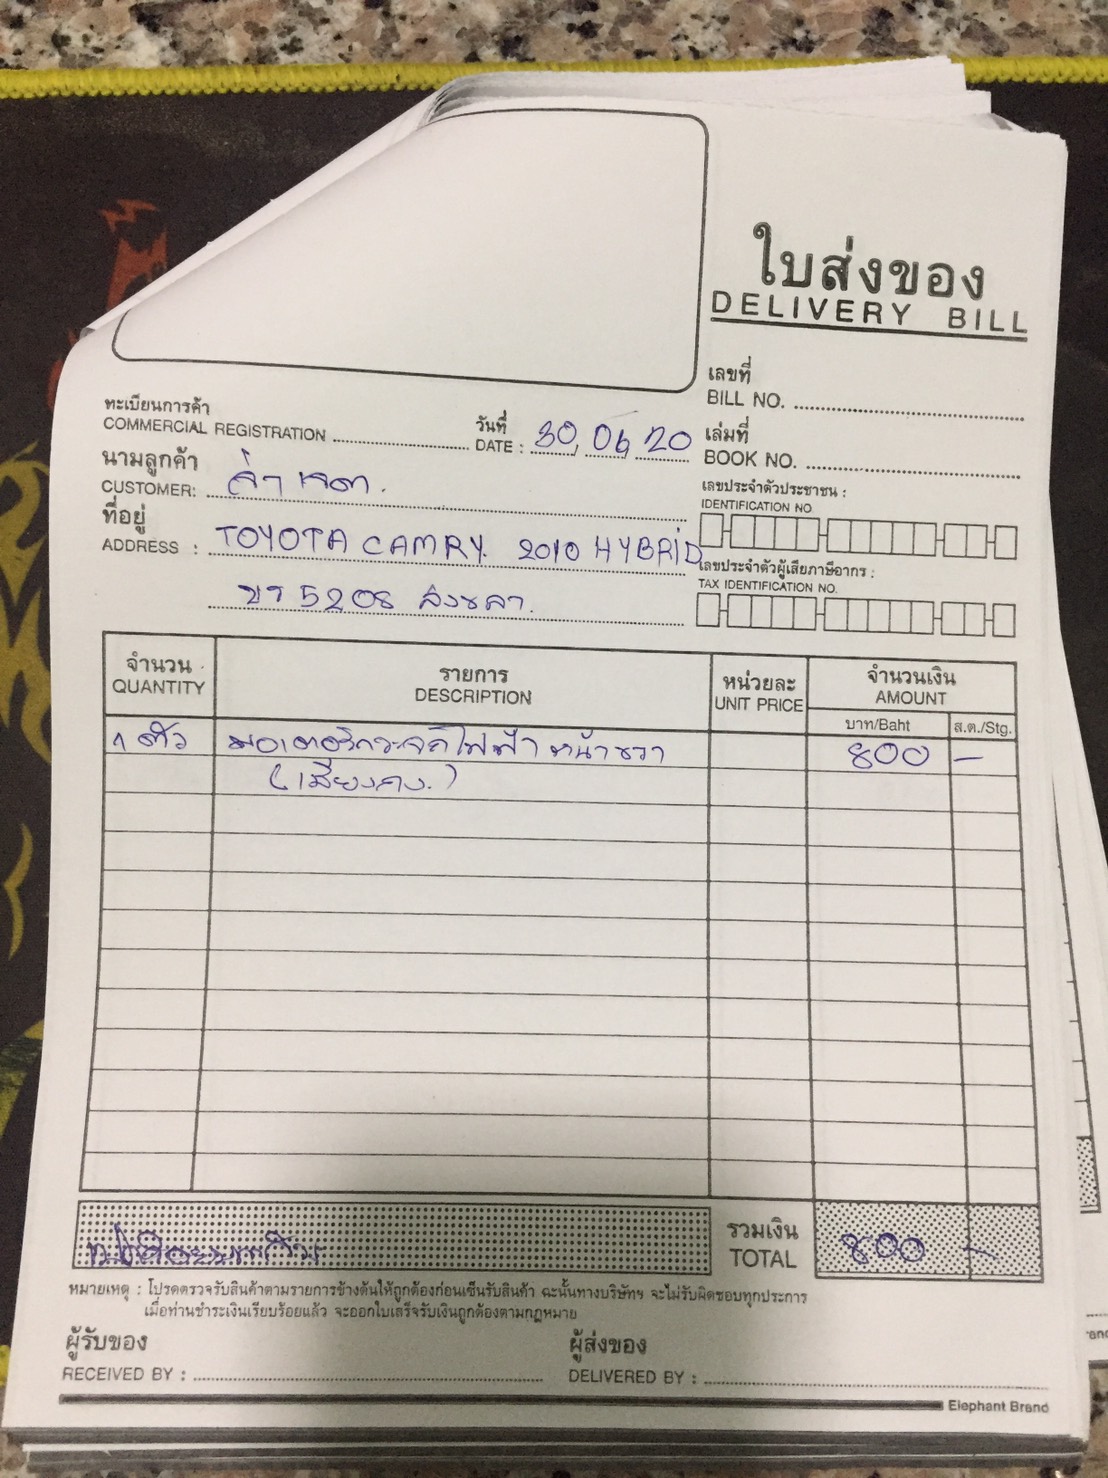 ใบส่งของ
DELIVERY BILL
เลขที่
BILL NO.
ทะเบียนการค้า
COMMERCIAL REGISTRATION
วันที่
DATE : 30, 06, 20
เล่มที่
BOOK NO.
นามลูกค้า
CUSTOMER:
เลขประจำตัวประชาชน :
IDENTIFICATION NO
ที่อยู่
ADDRESS : TOYOTA CAMRY. 2010 HYBRID
เลขประจำตัวผู้เสียภาษีอากร :
TAX IDENTIFICATION NO.
ขา 5208 สงขลา.
จำนวน
QUANTITY
รายการ
DESCRIPTION
หน่วยละ
UNIT PRICE
จำนวนเงิน
AMOUNT
บาท/Baht ส.ต./Stg.
1 ตัว มอเตอร์กระจกไฟฟ้า หน้าขวา 800 -
(เสียงดัง.)
รวมเงิน
TOTAL 800 -
หมายเหตุ : โปรดตรวจรับสินค้าตามรายการข้างต้นให้ถูกต้องก่อนเซ็นรับสินค้า ฉะนั้นทางบริษัทฯ จะไม่รับผิดชอบทุกประการ
เมื่อท่านชำระเงินเรียบร้อยแล้ว จะออกใบเสร็จรับเงินถูกต้องตามกฎหมาย
ผู้รับของ
RECEIVED BY :
ผู้ส่งของ
DELIVERED BY :
Elephant Brand